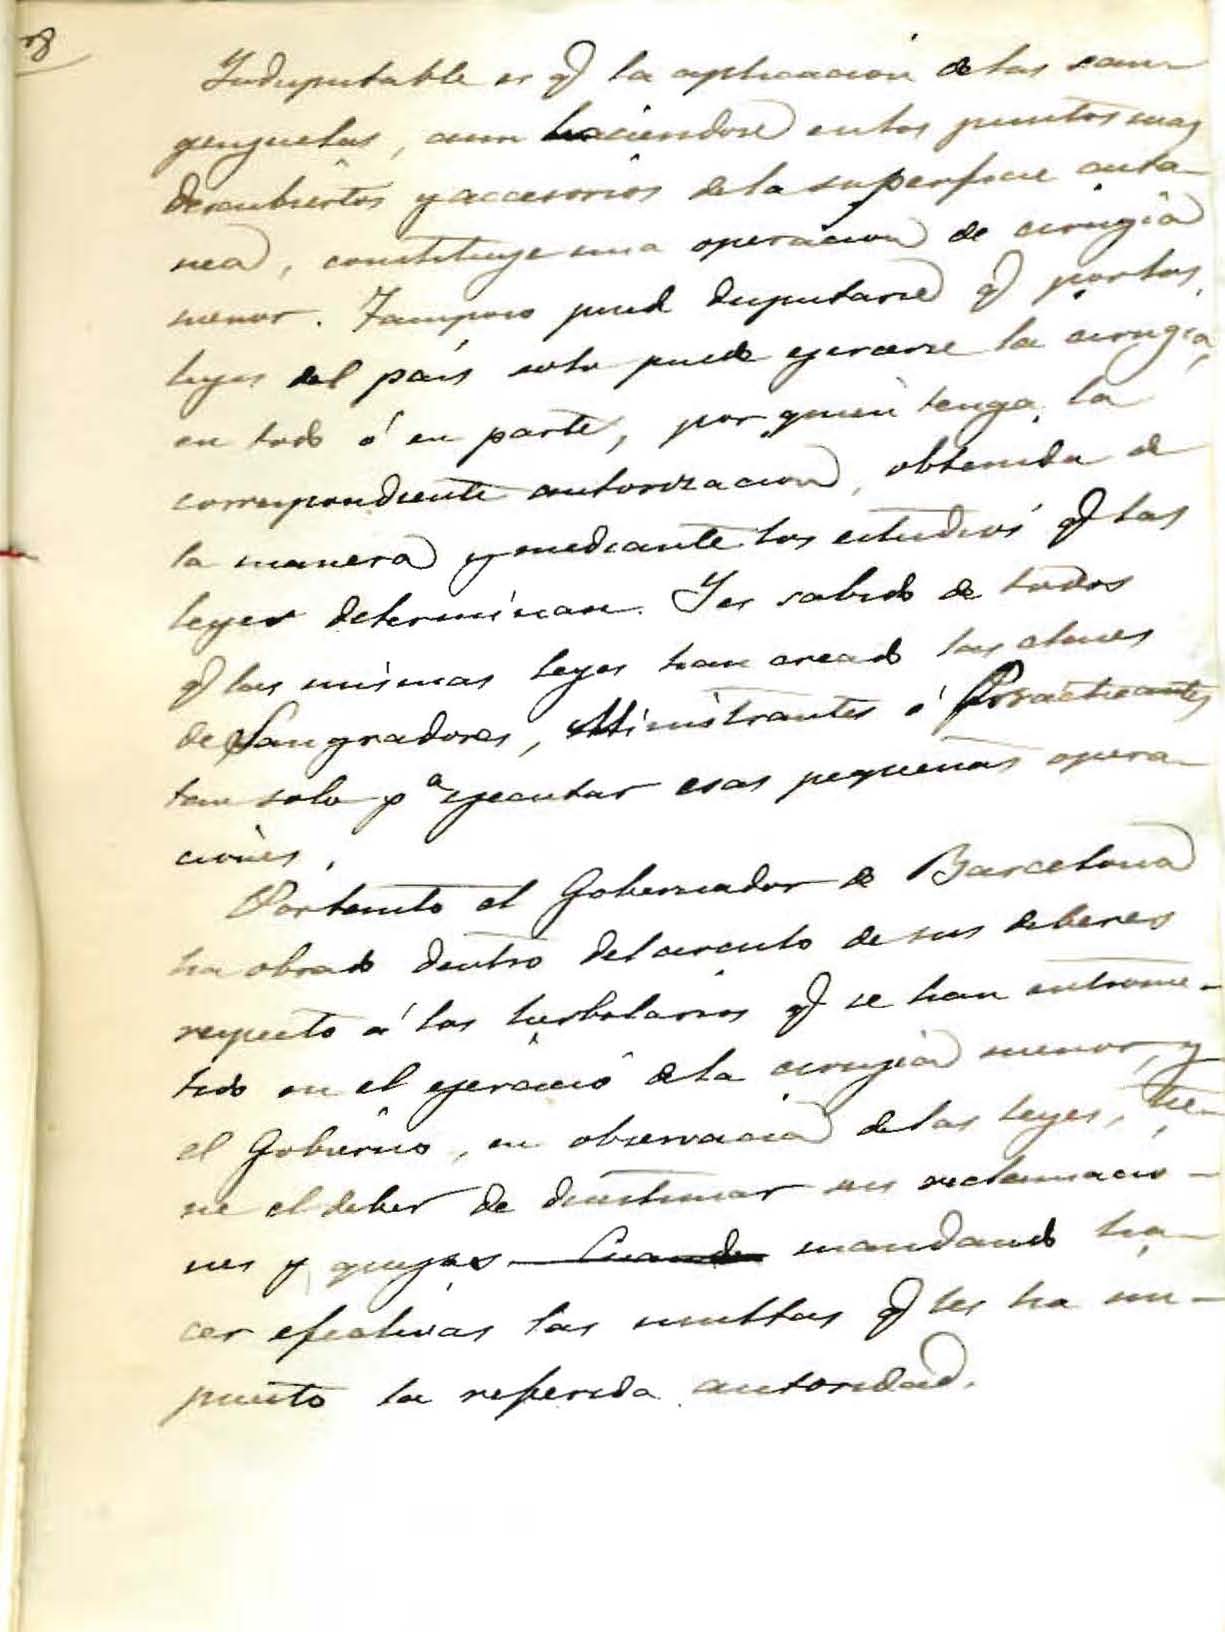 Indisputable es q̃ la aplicacion de las san-
guijuelas, aun haciendose en los puntos mas
descubiertos y accesorios de la superficie cuta-
nea, constituye una operacion de cirugía
menor. Tampoco pued disputarse q̃ por las
leyes del país solo puede ejercerse la cirugía,
en todo ó en parte, por quien tenga la
correspondiente autorizacion, obtenida de
la manera y mediante los estudios q̃ las
leyes determinan. Y es sabido de todos
q̃ las mismas leyes han creado las clases
de Sangradores, Ministrantes ó Practicantes
tan solo pª ejecutar esas pequeñas opera-
ciones.
Por tanto el Gobernador de Barcelona
ha obrado dentro del circulo de sus deberes
respecto á los herbolarios q̃ se han entrome-
tido en el ejercicio de la cirugía menor, y
el Gobierno, en observacion de las leyes, tie-
ne el deber de desestimar sus reclamacio-
nes y quejas Cuando mandando ha-
cer efectivas las multas q̃ les ha im-
puesto la referida autoridad.